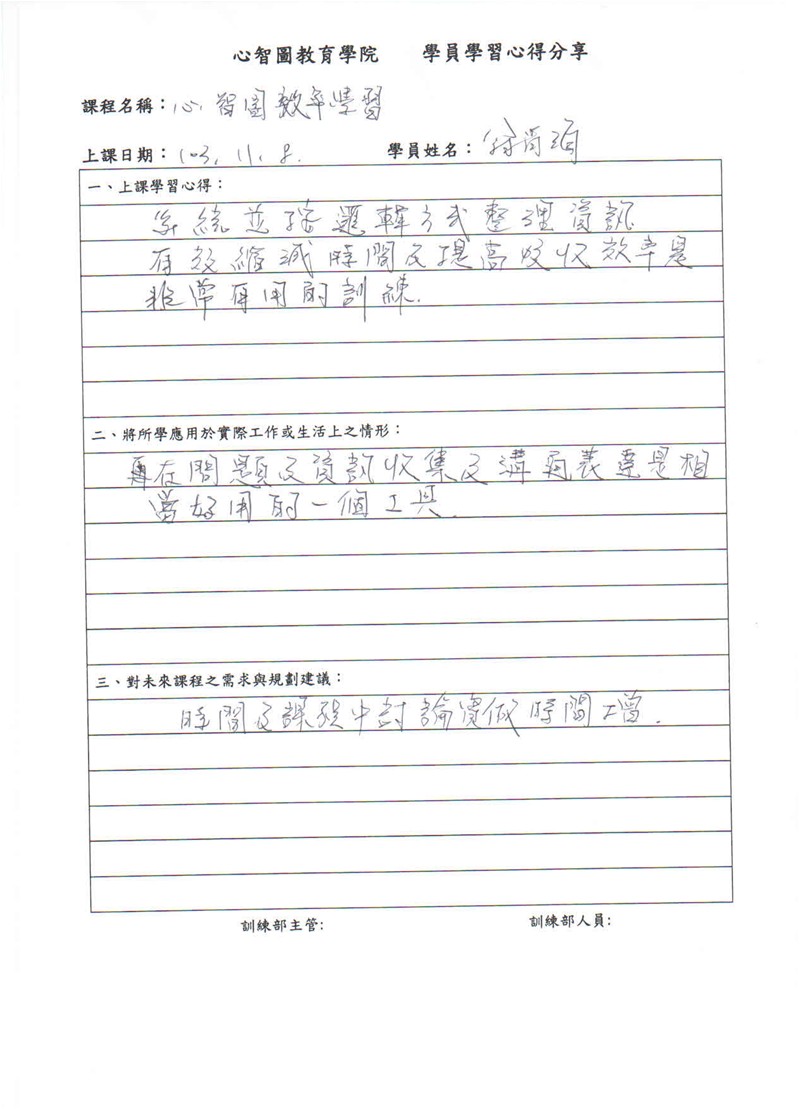 心智圖教育學院 學員學習心得分享
課程名稱：心智圖效率學習
上課日期：103.11.8. 學員姓名：
一、上課學習心得：
系統並按邏輯方式整理資訊
有效縮減時間及提高吸收效率是
非常有用的訓練.
二、將所學應用於實際工作或生活上之情形：
在問題及資訊收集及溝通表達是相
當好用的一個工具.
三、對未來課程之需求與規劃建議：
時間及課程中討論實做時間增.
訓練部主管: 訓練部人員: